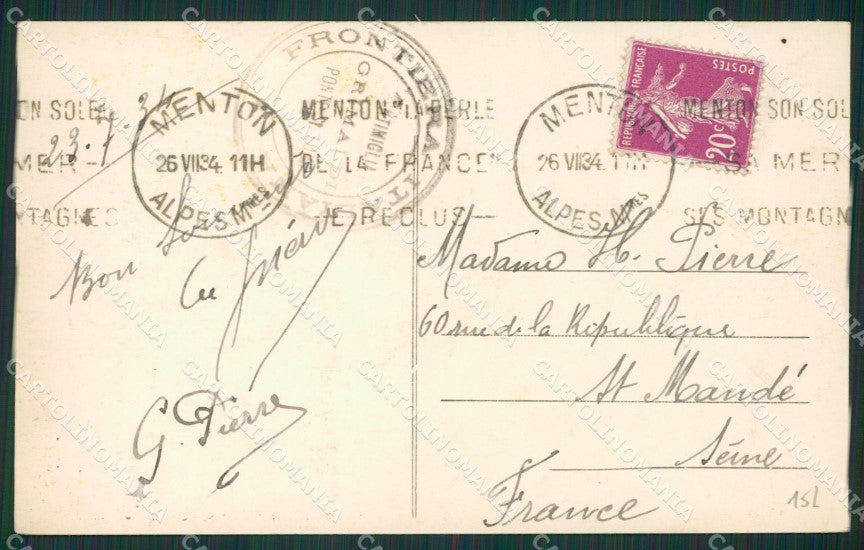 23.7.34
Bon
G. Pierre
MENTON
26 VII 34 11H
ALPES Mmes
MENTON "LA PERLE
DE LA FRANCE"
E. RECLUS
FRONTIERA ITA
GRIMALDI
VENTIMIGLIA
MENTON
26 VII 34 11H
ALPES Mmes
MENTON SON SOL
SA MER
SES MONTAGN
ON SOLEI
MER
TAGNES
REPUBLIQUE FRANCAISE
POSTES
20c
Madame H. Pierre
60 rue de la République
St Mandé
Seine
France
CARTOLINOMANIA